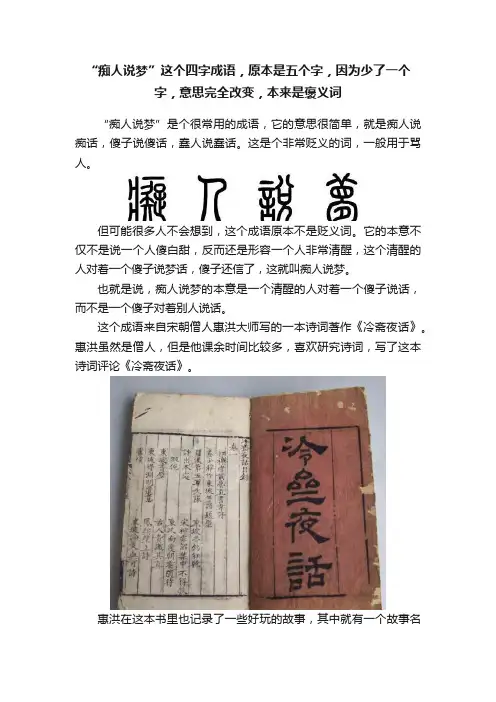 “痴人说梦”这个四字成语，原本是五个字，因为少了一个
字，意思完全改变，本来是褒义词
“痴人说梦”是个很常用的成语，它的意思很简单，就是痴人说
痴话，傻子说傻话，蠢人说蠢话。这是个非常贬义的词，一般用于骂
人。
癡人說夢
但可能很多人不会想到，这个成语原本不是贬义词。它的本意不
仅不是说一个人傻白甜，反而还是形容一个人非常清醒，这个清醒的
人对着一个傻子说梦话，傻子还信了，这就叫痴人说梦。
也就是说，痴人说梦的本意是一个清醒的人对着一个傻子说话，
而不是一个傻子对着别人说话。
这个成语来自宋朝僧人惠洪大师写的一本诗词著作《冷斋夜话》。
惠洪虽然是僧人，但是他课余时间比较多，喜欢研究诗词，写了这本
诗词评论《冷斋夜话》。
夜話
惠洪在这本书里也记录了一些好玩的故事，其中就有一个故事名